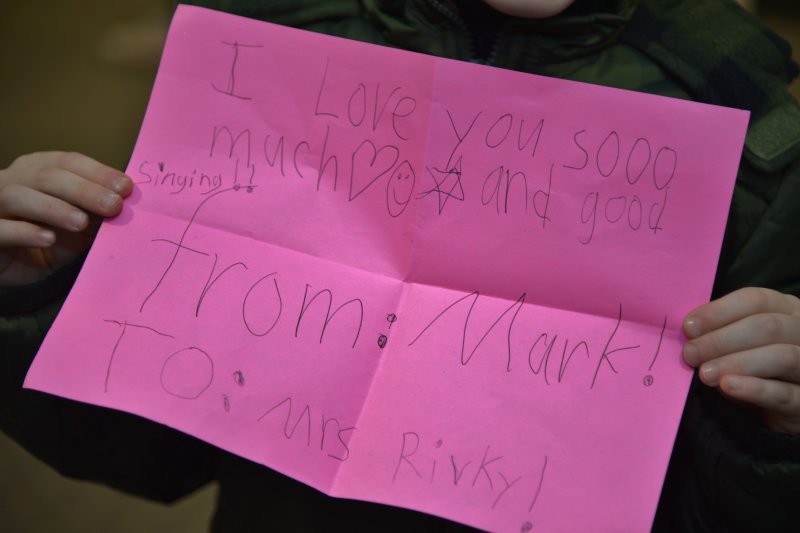 I Love you sooo
much♡☺✡ and good
Singing!!
from: Mark!
TO: Mrs Rivky!